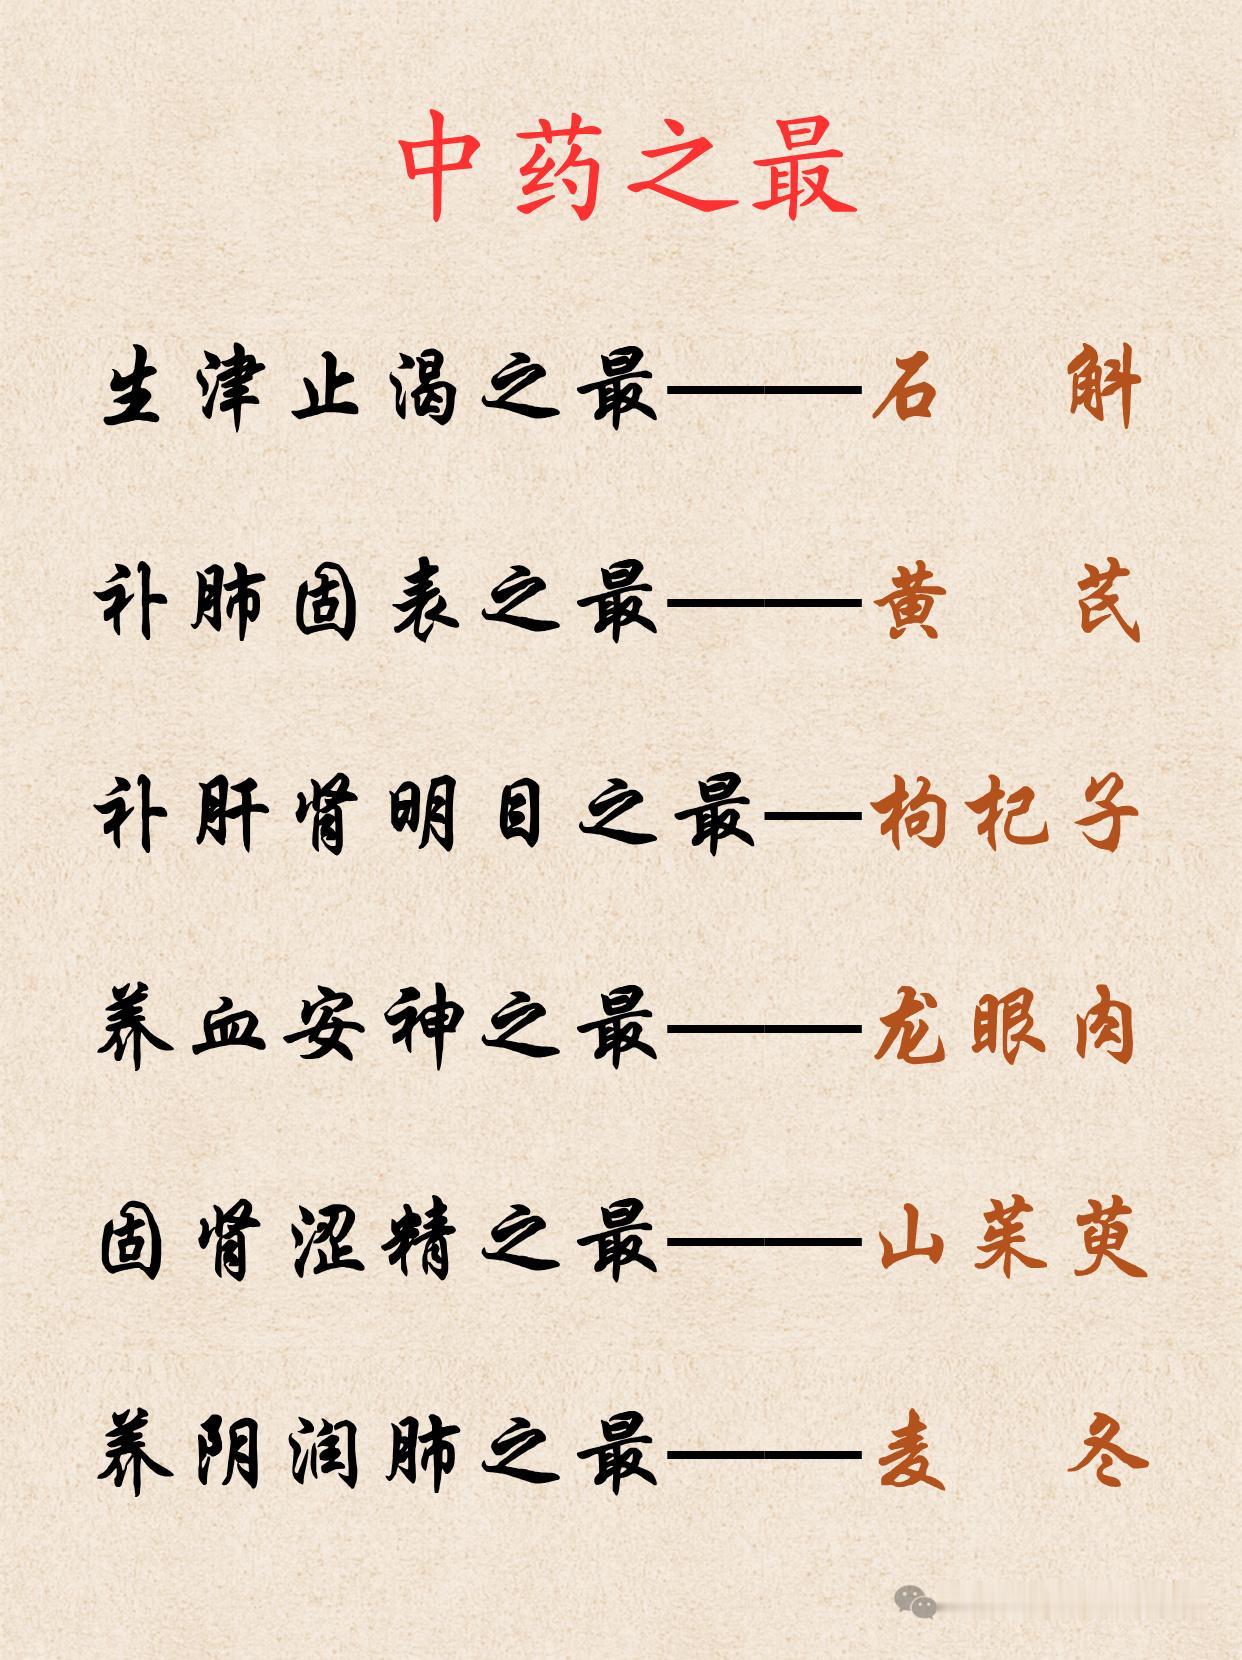 中药之最
生津止渴之最——石 斛
补肺固表之最——黄 芪
补肝肾明目之最—枸杞子
养血安神之最——龙眼肉
固肾涩精之最——山茱萸
养阴润肺之最——麦 冬